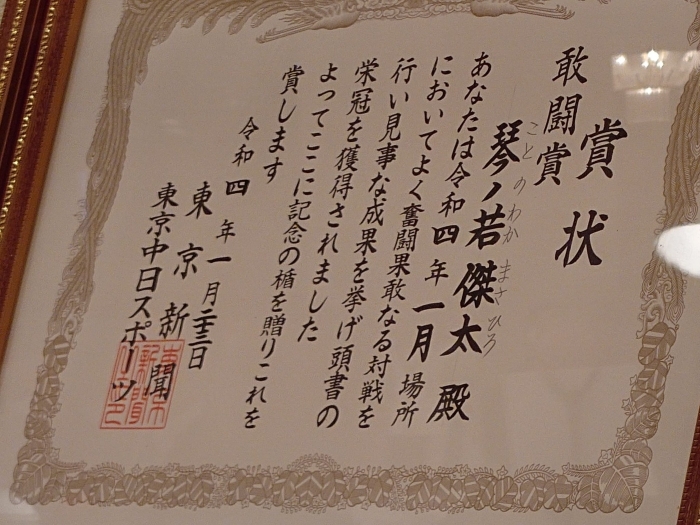 賞状
敢闘賞
琴ノ若傑太殿
ことのわか まさひろ
あなたは令和四年一月場所
においてよく奮闘果敢なる対戦を
行い見事な成果を挙げ頭書の
栄冠を獲得されました
よってここに記念の楯を贈りこれを
賞します
令和四年一月二十三日
東京新聞
東京中日スポーツ